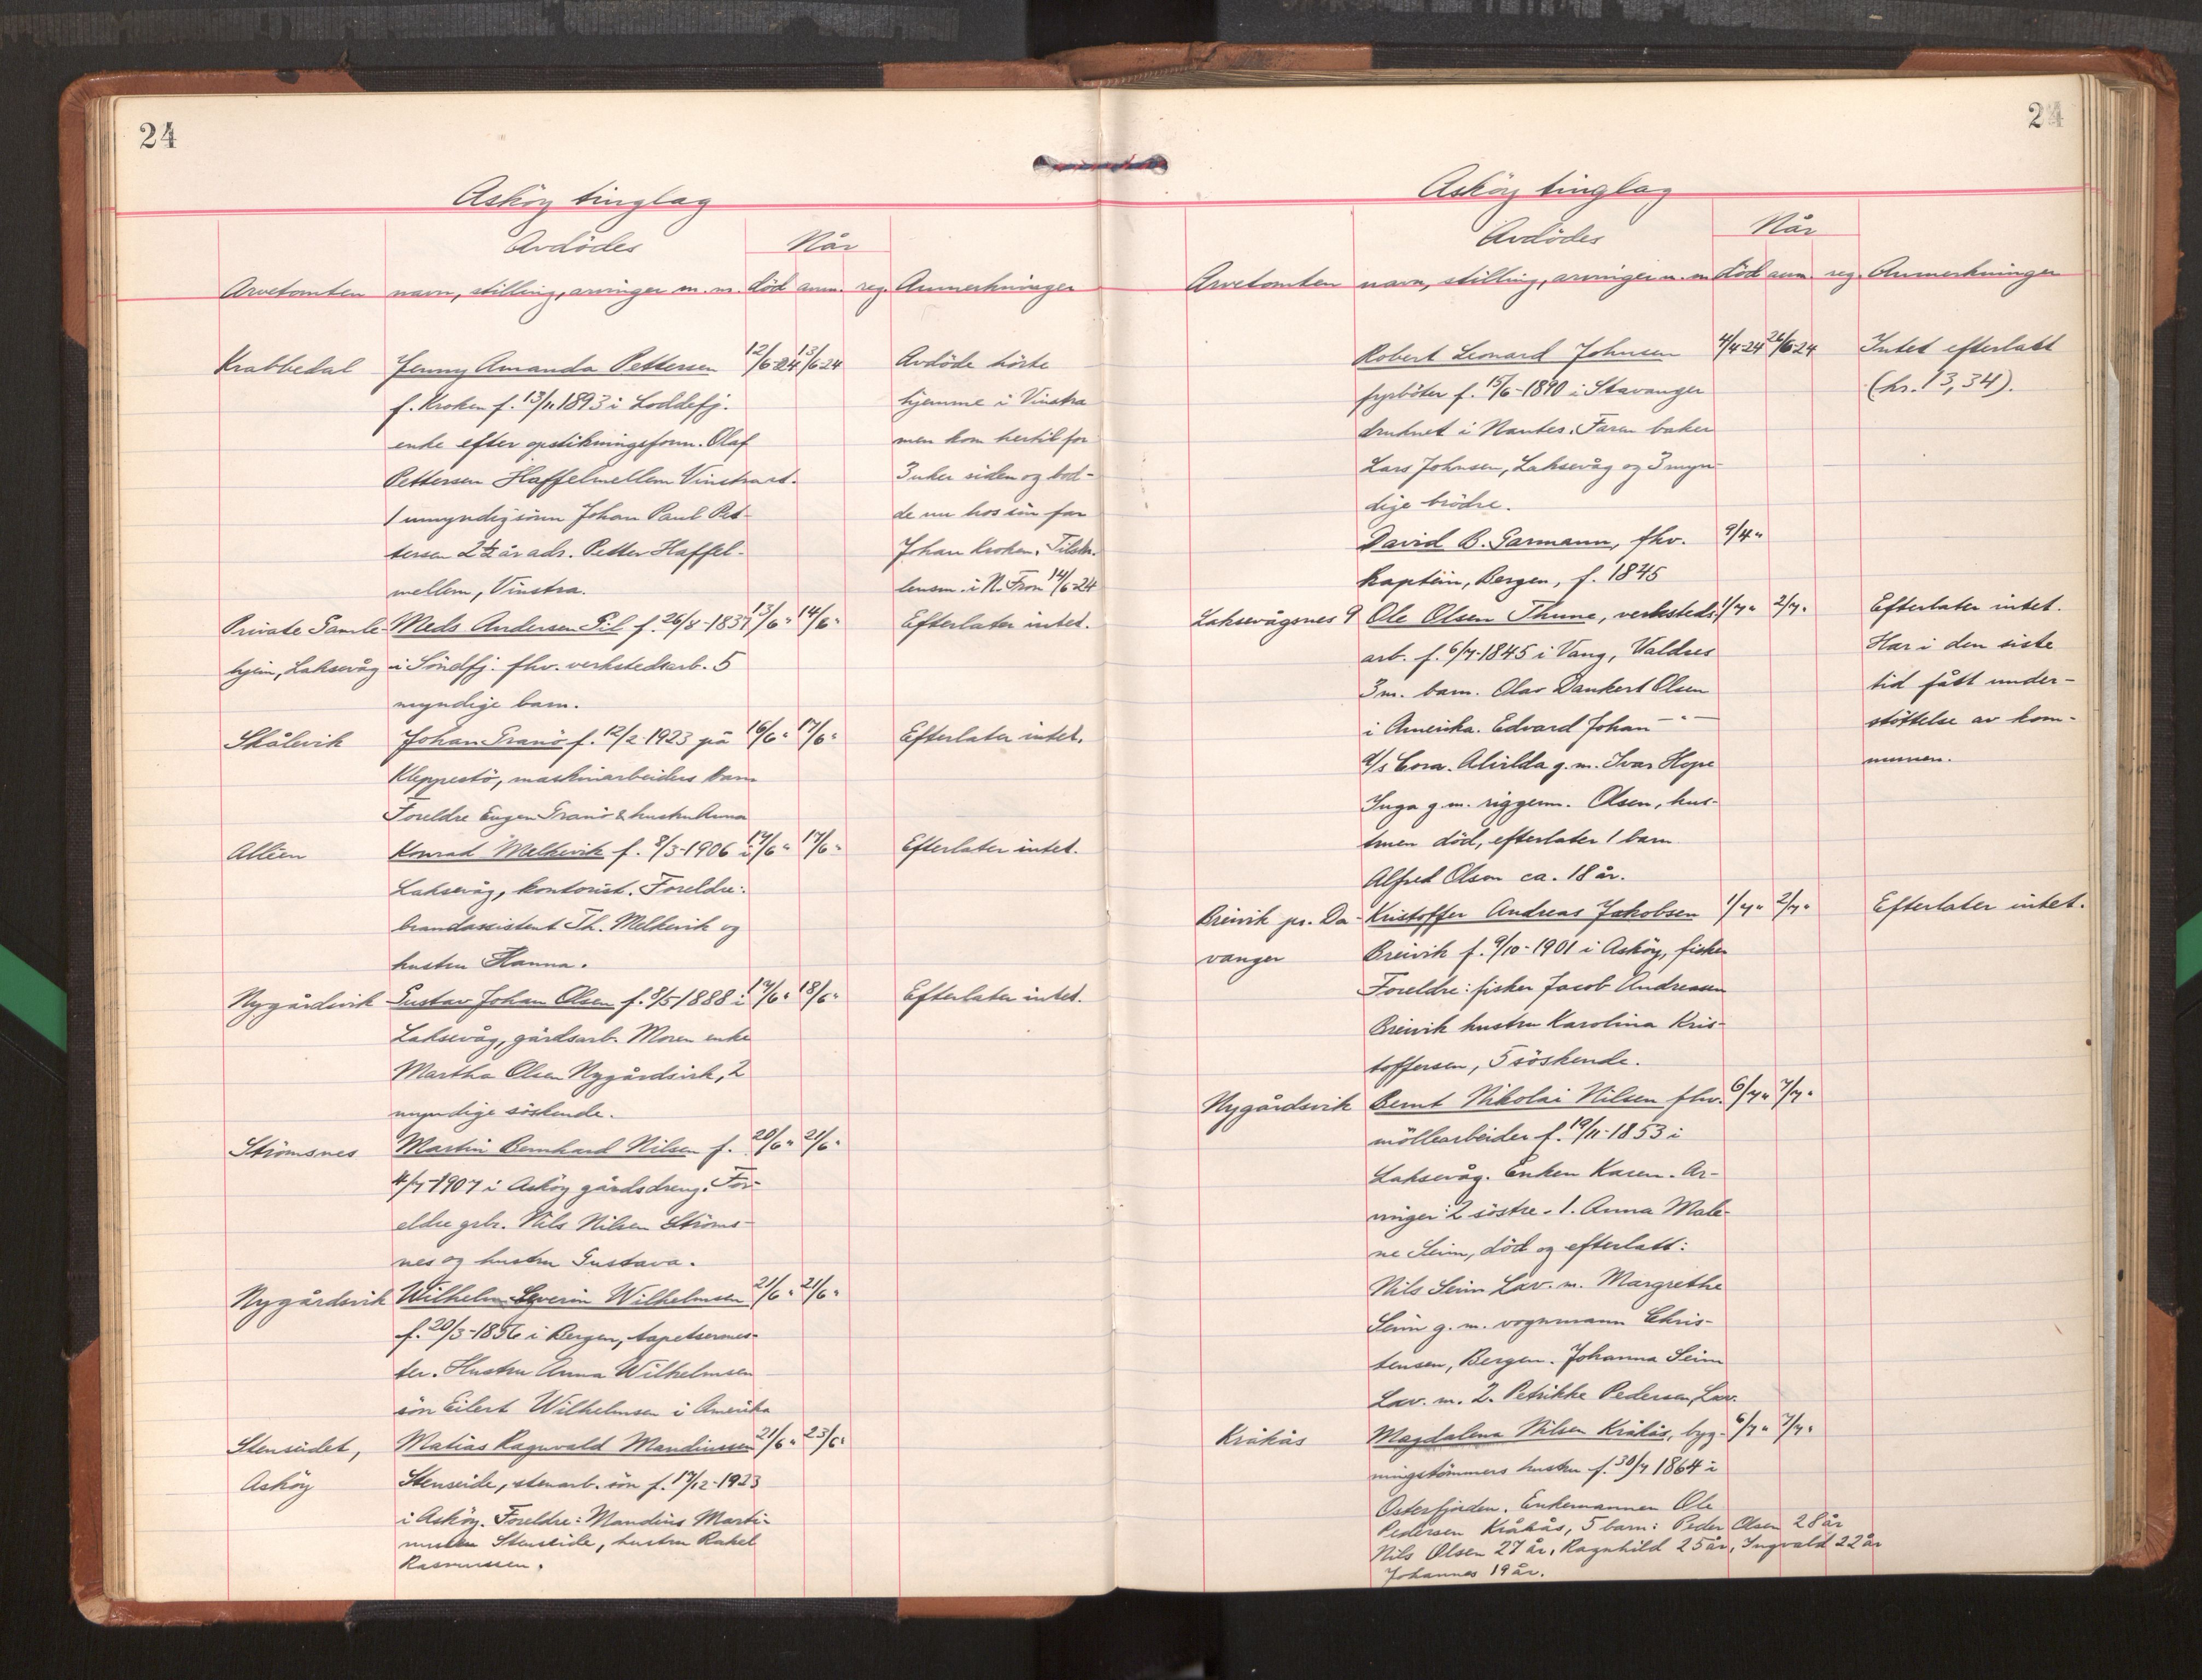 24
Asköy tinglag
Avdödes
Når
Arvetomten navn, stilling, arvinger m. m. död anm. reg. Anmerkninger
Krabbedal Jenny Amanda Pettersen 12/6-24 13/6-24 Avdöde hörte
f. Kroken f. 13/11 1893 i Loddefj. hjemme i Vinstra
enke efter opstikningsform. Olaf men kom hertil for
Pettersen Haffelmellem Vinstra st. 3 uker siden og bod-
1 umyndig sönn Johan Paul Pet- de nu hos sin far
tersen 2½ år adr. Petter Haffel- Johan Kroken. Tilskr.
mellem, Vinstra. lensm. i N. Fron 14/6-24
Private Gamle- Meds Andersen Gil f. 26/8-1837 13/6 " 14/6 " Efterlater intet.
hjem, Laksevåg i Söndfj. fhv. verkstedsarb. 5
myndige barn.
Skålevik Johan Tranö f. 12/2-1923 på 16/6 " 17/6 " Efterlater intet.
Kleppestö, maskinarbeiders barn
Foreldre Eugen Tranö & hustru Anna
Alléen Konrad Melkevik f. 8/3-1906 i 17/6 " 17/6 " Efterlater intet.
Laksevåg, kontorist. Foreldre:
brandassistent Th. Melkevik og
hustru Hanna.
Nygårdsvik Gustav Johan Olsen f. 8/5 1888 i 17/6 " 18/6 " Efterlater intet.
Laksevåg, gårdsarb. Moren enke
Martha Olsen Nygårdsvik, 2
myndige söskende.
Strömsnes Martin Bernhard Nilsen f. 20/6 " 21/6 "
4/7-1907 i Asköy gårdsdreng. For-
eldre gbr. Nils Nilsen Ströms-
nes og hustru Gustava.
Nygårdsvik Wilhelm Severin Wilhelmsen 21/6 " 21/6 "
f. 20/3-1856 i Bergen, tapetsermes-
ter. Hustru Anna Wilhelmsen
sön Eilert Wilhelmsen i Amerika
Stenseidet, Matias Ragnvald Mandiussen 21/6 " 23/6 "
Asköy Stenseide, stenarb. sön f. 17/12-1923
i Asköy. Foreldre: Mandius Marti-
nussen Stenseide, hustru Rakel
Rasmussen.
24
Asköy tinglag
Avdödes
Når
Arvetomten navn, stilling, arvinger m. m. död anm. reg. Anmerkninger
Robert Leonard Johnsen 4/4-24 26/6-24 Intet efterlatt
fyrböter f. 15/6-1890 i Stavanger (kr. 13,34).
druknet i Nantes. Faren baker
Lars Johnsen, Laksevåg og 3 myn-
dige brödre.
David B. Garmann, fhv. 9/4 "
kaptein, Bergen, f. 1845
Laksevågsnes 9 Ole Olsen Thune, verksteds- 1/7 " 2/7 " Efterlater intet.
arb. f. 6/7-1845 i Vang, Valdres Har i den siste
3 m. barn. Olav Dankert Olsen tid fått under-
i Amerika. Edvard Johan — " — stöttelse av kom-
d/s Cora. Alvilda g. m. Ivar Hope munen.
Inga g. m. riggerm. Olsen, hus-
truen död, efterlater 1 barn
Alfred Olsen ca. 18 år.
Breivik pr. Da- Kristoffer Andreas Jakobsen 1/7 " 2/7 " Efterlater intet.
vanger Breivik f. 9/10-1901 i Asköy, fisker
Foreldre: fisker Jacob Andreasen
Breivik hustru Karolina Kris-
toffersen, 5 söskende.
Nygårdsvik Bernt Nikolai Nilsen fhv. 6/7 " 7/7 "
möllearbeider f. 19/11-1853 i
Laksevåg. Enken Karen. Ar-
vinger: 2 söstre. 1. Anna Male-
ne Seim, död og efterlatt:
Nils Seim Lav. m. Margrethe
Seim g. m. vognmann Chris-
tensen, Bergen. Johanna Seim
Lav. m. 2. Petrikke Pedersen, Lav.
Kråkås Magdalena Nilsen Kråkås, byg- 6/7 " 7/7 "
ningstömmers hustru f. 30/7 1864 i
Osterfjorden. Enkemannen Ole
Pedersen Kråkås, 5 barn: Peder Olsen 28 år
Nils Olsen 27 år, Ragnhild 25 år, Ingvald 22 år
Johannes 19 år.